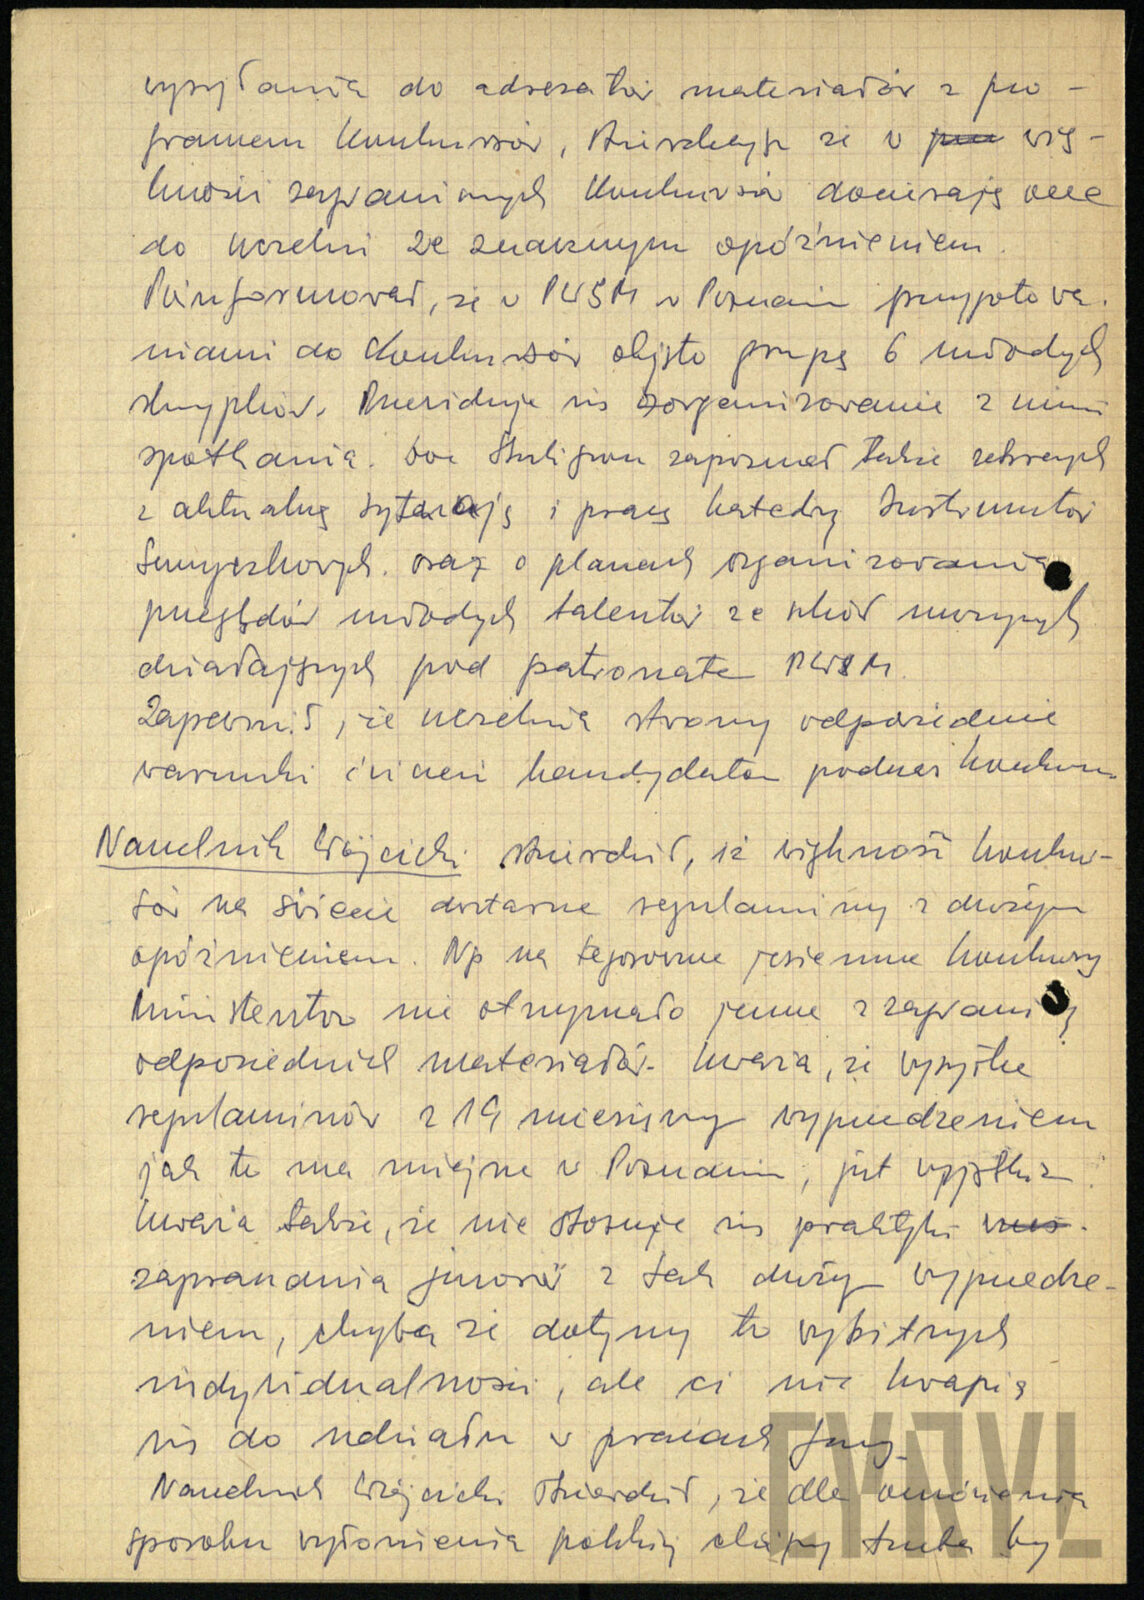 wysyłania do adresatów materiałów z pro-
gramem Konkursów, stwierdzając że w wię-
kszości zagranicznych Konkursów docierają one
do uczelni ze znacznym opóźnieniem.
Poinformował, że w PWSM w Poznaniu przygotowa-
niami do Konkursów objęto grupę 6 młodych
skrzypków. Przewiduje się zorganizowanie z nimi
spotkania. Doc Stuligrosz zapoznał także zebranych
z aktualną sytuacją i pracą Katedry Instrumentów
Smyczkowych oraz o planach organizowania
przeglądów młodych talentów ze szkół muzycznych
działających pod patronatem PWSM.
Zapewnił, że uczelnia stworzy odpowiednie
warunki ćwiczeń kandydatom podczas Konkursu
Naczelnik Wójcicki stwierdził, iż większość konkur-
sów na świecie dostarcza regulaminy z dużym
opóźnieniem. Np na tegoroczne jesienne konkursy
Ministerstwo nie otrzymało jeszcze z zagranicy
odpowiednich materiałów. Uważa, że wysyłka
regulaminów z 19 miesięcznym wyprzedzeniem
jak to ma miejsce w Poznaniu, jest
Uważa także, że nie stosuje się praktyki
zapraszania jurorów z tak dużym wyprzedze-
niem, chyba że dotyczy to wybitnych
indywidualności, ale ci nie kwapią
się do udziału w pracach Jury.
Naczelnik Wójcicki stwierdził, że dla omówienia
sposobu wyłonienia polskiej ekipy trzeba by
CYRYL